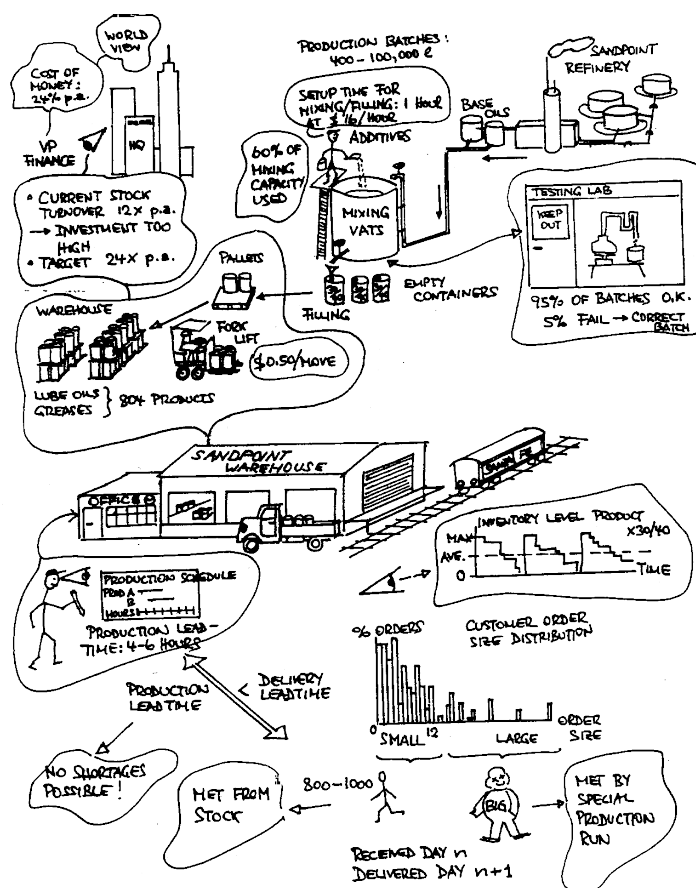 WORLD
VIEW
COST OF
MONEY:
24% p.a.
VP
FINANCE
HQ
• CURRENT STOCK
TURNOVER 12X p.a.
→ INVESTMENT TOO
HIGH
• TARGET 24X p.a.
PRODUCTION BATCHES:
400 – 100,000 ℓ
SETUP TIME FOR
MIXING/FILLING: 1 HOUR
AT $16/HOUR
ADDITIVES
60% OF
MIXING
CAPACITY
USED
MIXING
VATS
BASE
OILS
SANDPOINT
REFINERY
TESTING LAB
KEEP
OUT
95% OF BATCHES O.K.
5% FAIL → CORRECT
BATCH
PALLETS
FILLING
EMPTY
CONTAINERS
WAREHOUSE
FORK
LIFT
$0.50/MOVE
LUBE OILS
GREASES } 804 PRODUCTS
SANDPOINT
WAREHOUSE
OFFICE
SANTA FE
INVENTORY LEVEL PRODUCT
X30/40
MAX
AVE.
0
TIME
PRODUCTION SCHEDULE
PROD A
B
HOURS
PRODUCTION LEAD-
TIME: 4-6 HOURS
PRODUCTION
LEADTIME
< DELIVERY
LEADTIME
NO SHORTAGES
POSSIBLE!
CUSTOMER ORDER
SIZE DISTRIBUTION
% ORDERS
0
12
ORDER
SIZE
SMALL
LARGE
MET FROM
STOCK
800-1000
BIG
MET BY
SPECIAL
PRODUCTION
RUN
RECEIVED DAY n
DELIVERED DAY n+1